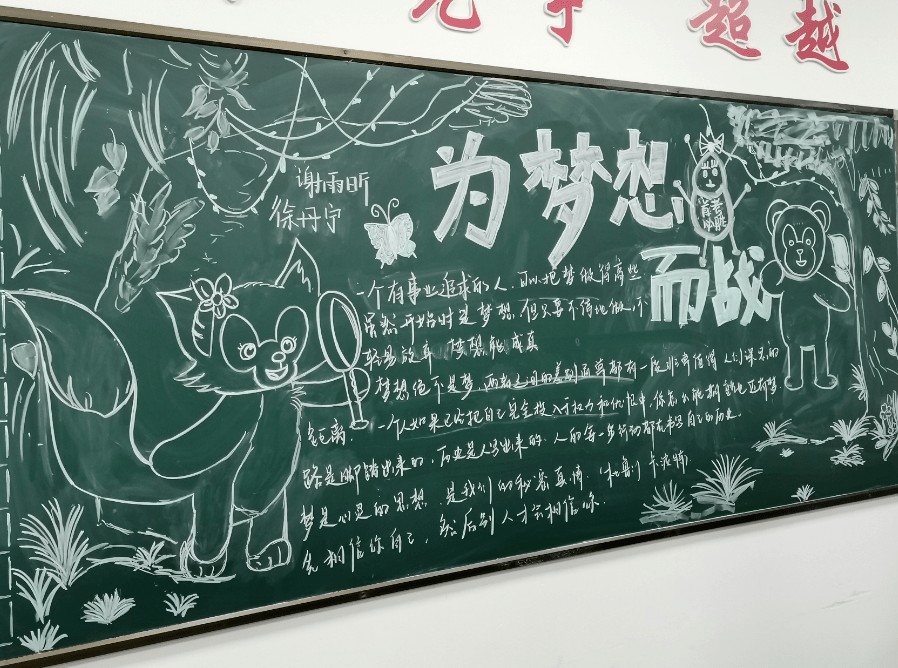 超越
谢雨昕
徐丹宁
为梦想
而战
一个有事业追求的人,可以把梦做得高些
虽然开始时是梦想,但只要不停地做,不
轻易放弃,梦想能成真
梦想绝不是梦,两者之间的差别通常都有一段非常值得人们深思的
距离。一个人如果已经把自己完全投入于权力和仇恨中,你怎么能期望他还有梦
路是脚踏出来的,历史是人写出来的,人的每一步行动都在书写自己的历史。
梦是心灵的思想,是我们的秘密真情。(杜鲁门·卡波特)
先相信你自己,然后别人才会相信你.